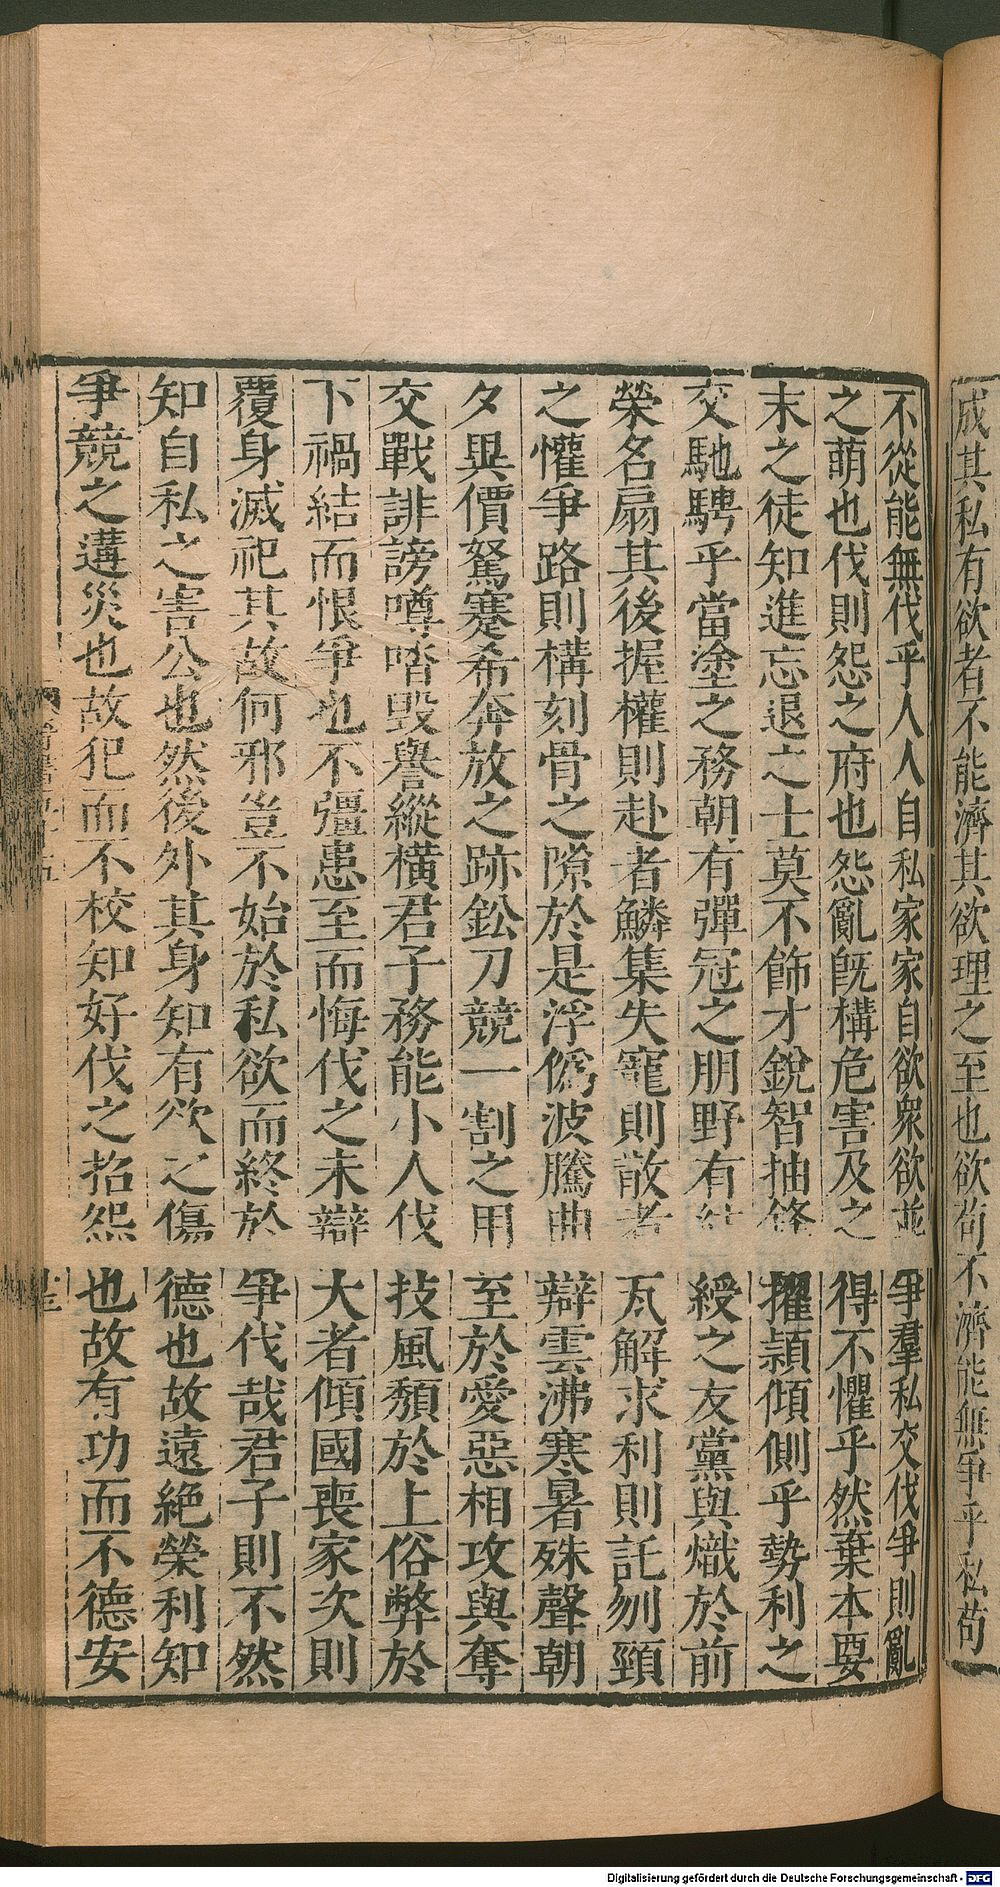 成其私有欲者不能濟其欲理之至也欲苟不濟能無爭乎私苟
不從能無伐乎人人自私家家自欲衆欲並爭羣私交伐爭則亂
之萌也伐則怨之府也怨亂旣構危害及之得不懼乎然棄本要
末之徒知進忘退之士莫不飾才銳智抽鋒擢頴傾側乎勢利之
交馳騁乎當塗之務朝有彈冠之朋野有結綬之友黨與熾於前
榮名扇其後握權則赴者鱗集失寵則散者瓦解求利則託刎頸
之懽爭路則構刻骨之隙於是浮僞波騰曲辯雲沸寒暑殊聲朝
夕異價駑蹇希奔放之跡鈆刀競一割之用至於愛惡相攻與奪
交戰誹謗噂𠴲毀譽縱橫君子務能小人伐技風頽於上俗弊於
下禍結而恨爭也不彊患至而悔伐之未辯大者傾國喪家次則
覆身滅祀其故何邪豈不始於私欲而終於爭伐哉君子則不然
知自私之害公也然後外其身知有欲之傷德也故遠絶榮利知
爭競之遘災也故犯而不校知好伐之招怨也故有功而不德安
Digitalisierung gefördert durch die Deutsche Forschungsgemeinschaft - DFG